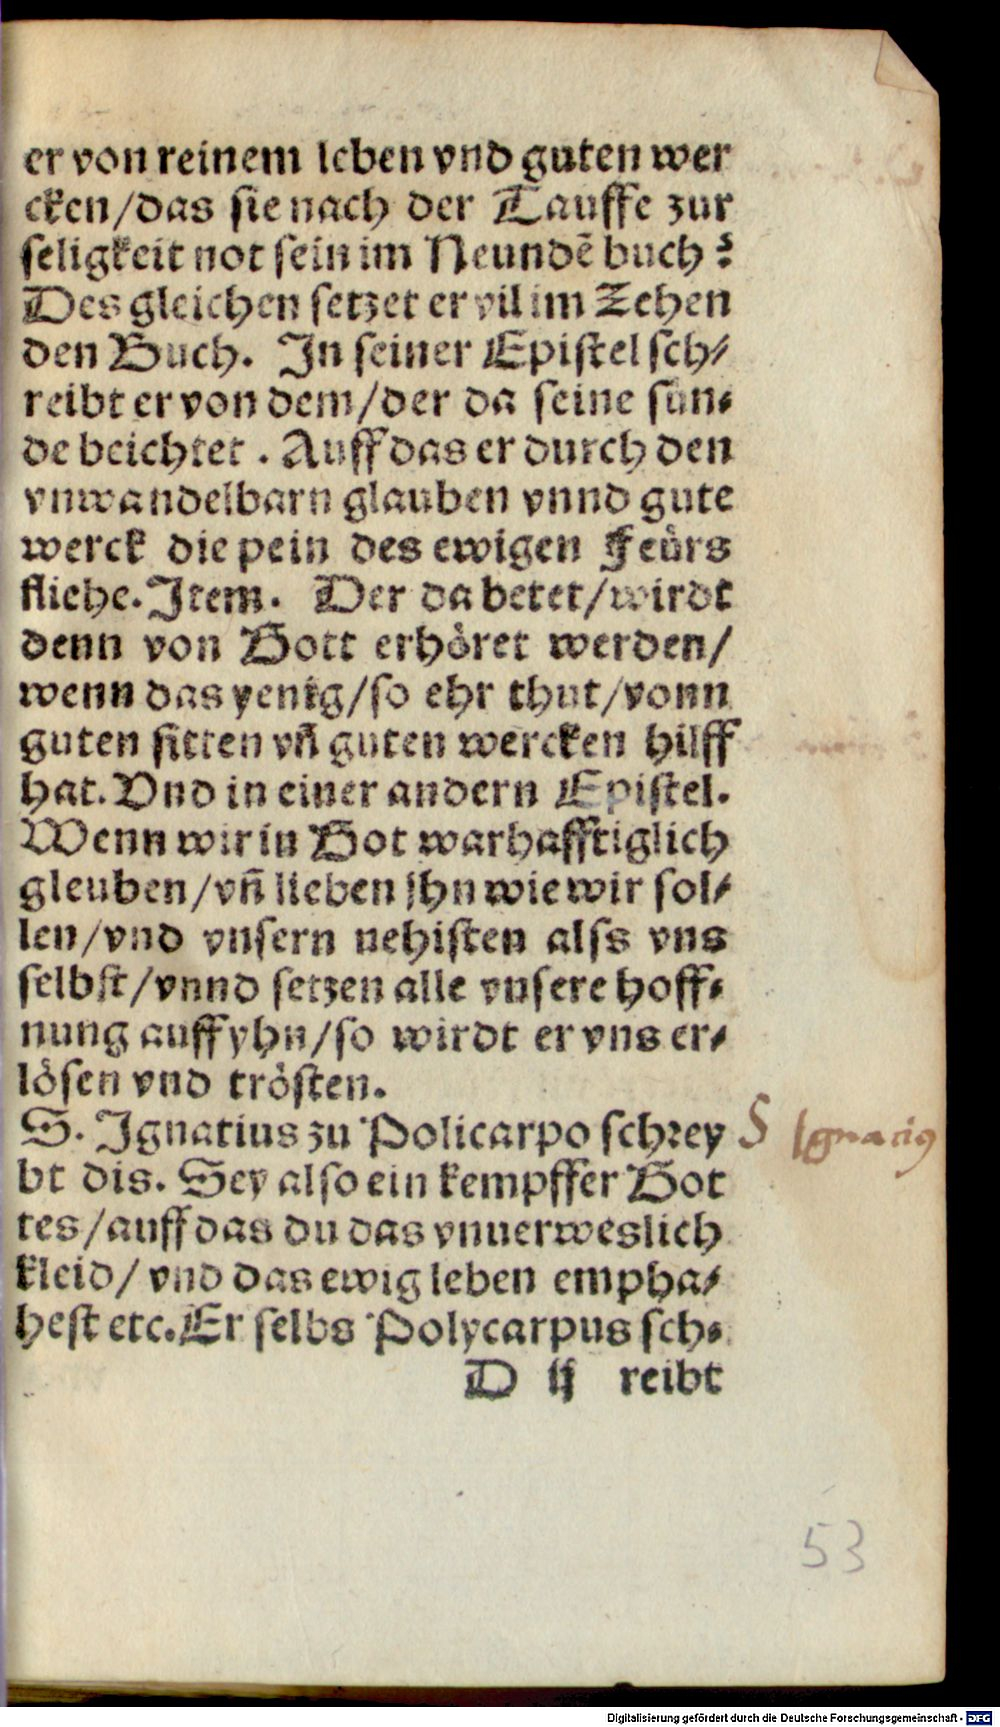 er von reinem leben vnd guten wer
cken/das sie nach der Tauffe zur
seligkeit not sein im Neundẽ buch?
Des gleichen setzet er vil im Zehen
den Buch. In seiner Epistel sch-
reibt er von dem/der da seine sün-
de beichtet. Auff das er durch den
vnwandelbarn glauben vnnd gute
werck die pein des ewigen Feürs
fliehe. Item. Der da betet/wirdt
denn von Gott erhöret werden/
wenn das yenig/so ehr thut/vonn
guten sitten vñ guten wercken hilff
hat. Vnd in einer andern Epistel.
Wenn wir in Got warhafftiglich
gleuben/vñ lieben jhn wie wir sol-
len/vnd vnsern nehisten alss vns
selbst/vnnd setzen alle vnsere hoff-
nung auff yhn/so wirdt er vns er-
lösen vnd trösten.
S. Ignatius zu Policarpo schrey
S Ignacius
bt dis. Sey also ein kempffer Got
tes/auff das du das vnuerweslich
kleid/ vnd das ewig leben empha-
hest etc. Er selbs Polycarpus sch-
D ij reibt
53
Digitalisierung gefördert durch die Deutsche Forschungsgemeinschaft - DFG